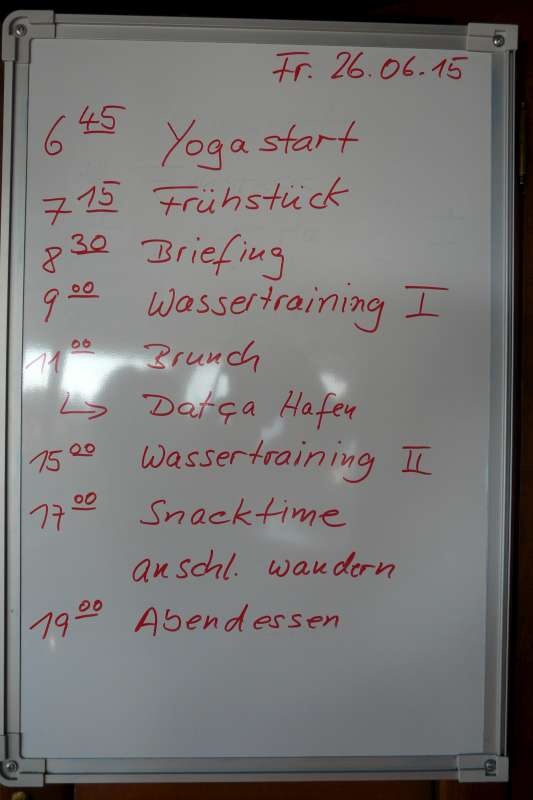 Fr. 26.06.15
6 45 Yogastart
7 15 Frühstück
8 30 Briefing
9 00 Wassertraining I
11 00 Brunch
↳ Datça Hafen
15 00 Wassertraining II
17 00 Snacktime
anschl. wandern
19 00 Abendessen